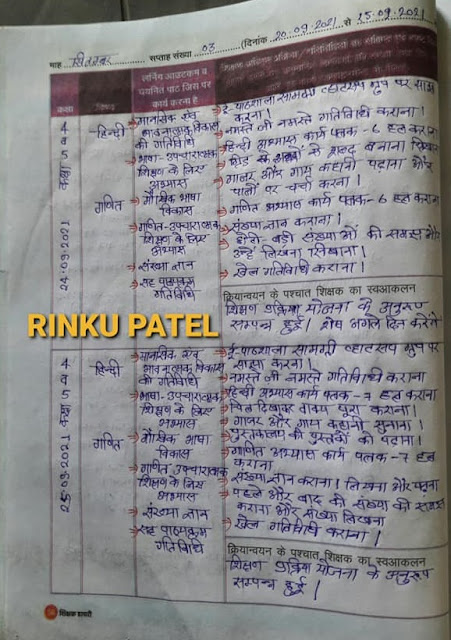 माह सितम्बर सप्ताह संख्या 03 (दिनांक 20.09.2021 से 25.09.2021
कक्षा विषय लर्निंग आउटकम व चयनित पाठ जिस पर कार्य करना है
24-09-2021
कक्षा 4 व 5
हिन्दी
→मानसिक एवं भावनात्मक विकास की गतिविधि
→भाषा-उपचारात्मक शिक्षण के लिए अभ्यास
गणित
→मौखिक भाषा विकास
→गणित-उपचारात्मक शिक्षण के लिए अभ्यास
→संख्या ज्ञान
→सह पाठ्यक्रम गतिविधि
→ई-पाठशाला सामग्री व्हाटसप ग्रुप पर साझा करना।
→नमस्ते जी नमस्ते गतिविधि कराना।
→हिन्दी अभ्यास कार्य पत्रक-6 हल कराना
→गाजर और गाय कहानी पढ़ाना और पात्रों पर चर्चा करना।
→गणित अभ्यास कार्य पत्रक-6 हल कराना
→संख्या ज्ञान कराना।
→छोटी-बड़ी संख्याओं की समझ और उन्हें लिखना सिखाना।
→खेल गतिविधि कराना।
क्रियान्वयन के पश्चात शिक्षक का स्वआकलन
शिक्षण प्रक्रिया योजना के अनुरूप
सम्पन्न हुई। शेष अगले दिन करेंगे
RINKU PATEL
25-09-2021
कक्षा 4 व 5
हिन्दी
→मानसिक एवं भावनात्मक विकास की गतिविधि
→भाषा-उपचारात्मक शिक्षण के लिए अभ्यास
गणित
→मौखिक भाषा विकास
→गणित उपचारात्मक शिक्षण के लिए अभ्यास
→संख्या ज्ञान
→सह पाठ्यक्रम गतिविधि
→ई-पाठशाला सामग्री व्हाटसप ग्रुप पर साझा करना।
→नमस्ते जी नमस्ते गतिविधि कराना
→हिन्दी अभ्यास कार्य पत्रक-7 हल कराना
→चित्र दिखाकर वाक्य पूरा कराना।
→गाजर और गाय कहानी सुनाना।
→पुस्तकालय की पुस्तकों को पढ़ाना।
→गणित अभ्यास कार्य पत्रक-7 हल कराना
→संख्या ज्ञान कराना। लिखना और पढ़ना
→पहले और बाद की संख्या की समझ कराना और संख्या लिखना
→खेल गतिविधि कराना।
क्रियान्वयन के पश्चात शिक्षक का स्वआकलन
शिक्षण प्रक्रिया योजना के अनुरूप
सम्पन्न हुई।
शिक्षक डायरी